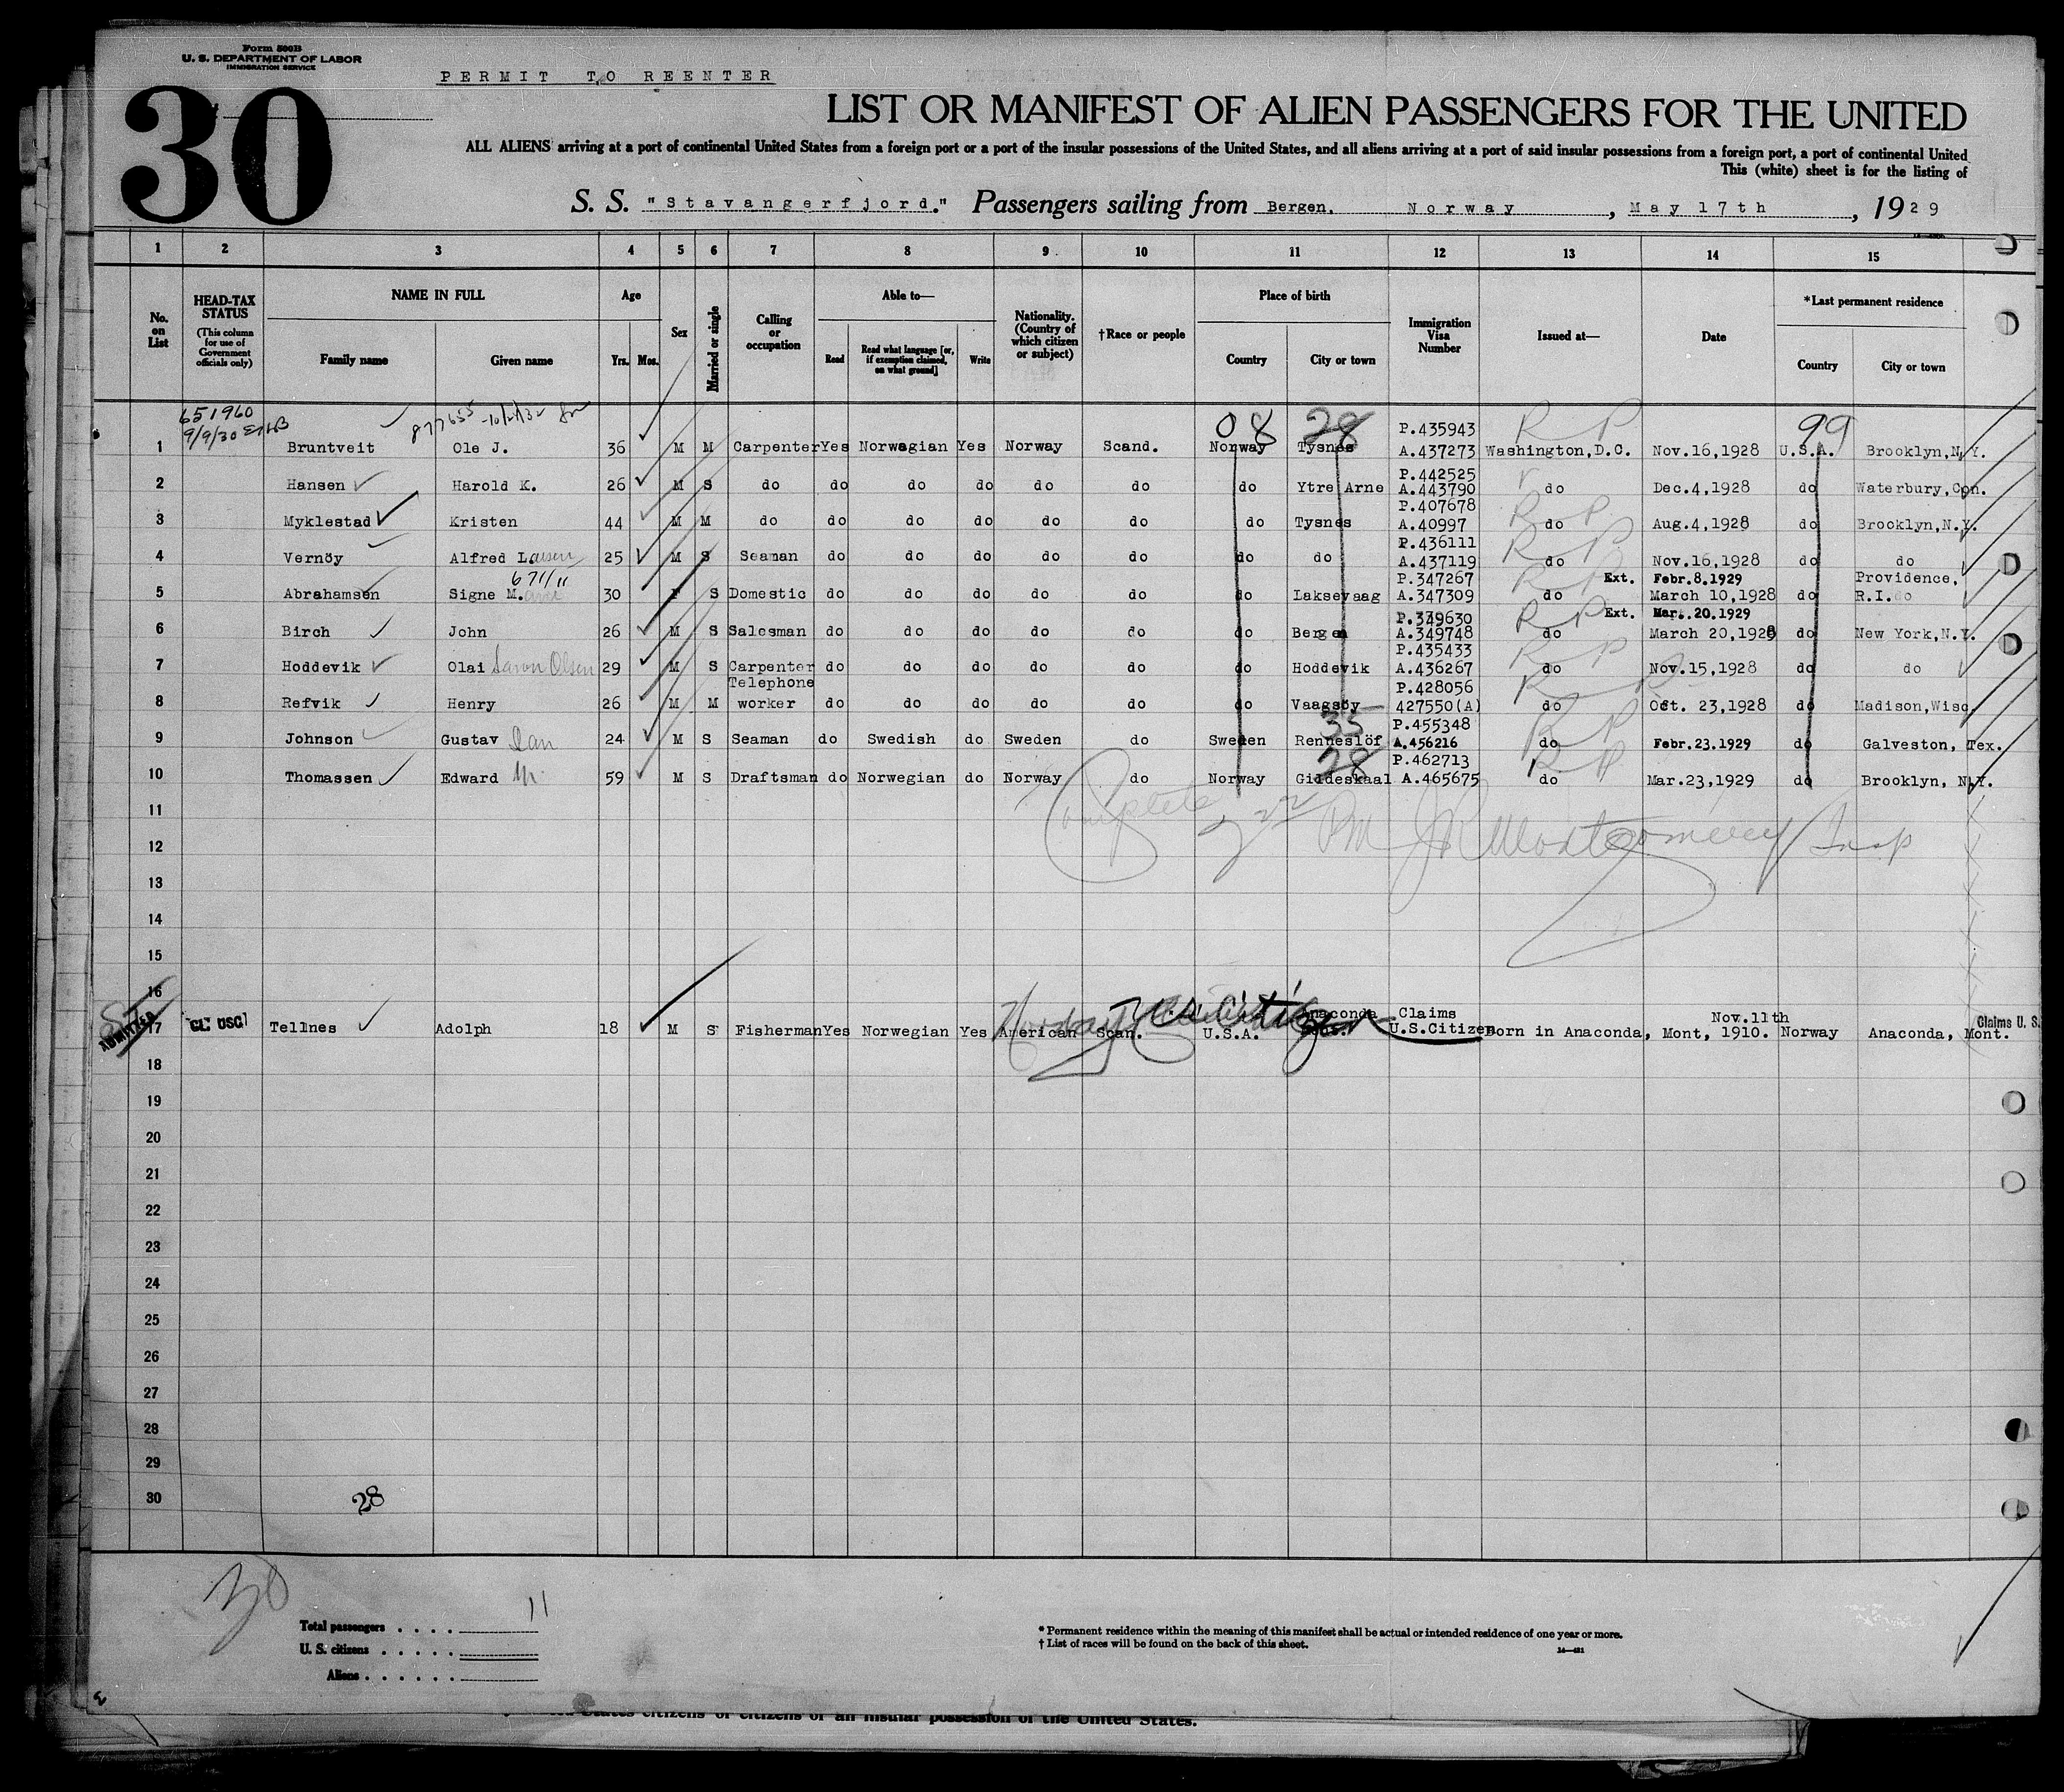 Form 500B
U. S. DEPARTMENT OF LABOR
IMMIGRATION SERVICE
PERMIT TO REENTER
30
LIST OR MANIFEST OF ALIEN PASSENGERS FOR THE UNITED
ALL ALIENS arriving at a port of continental United States from a foreign port or a port of the insular possessions of the United States, and all aliens arriving at a port of said insular possessions from a foreign port, a port of continental United
This (white) sheet is for the listing of
S. S. "Stavangerfjord." Passengers sailing from Bergen, Norway, May 17th, 1929
1 2 3 4 5 6 7 8 9 10 11 12 13 14 15
No. on List HEAD-TAX STATUS (This column for use of Government officials only) NAME IN FULL Family name Given name Age Yrs. Mos. Sex Married or single Calling or occupation Able to— Read Read what language [or, if exemption claimed, on what ground] Write Nationality. (Country of which citizen or subject) †Race or people Place of birth Country City or town Immigration Visa Number Issued at— Date *Last permanent residence Country City or town
651960 877655 08 28 P.435943 R P 99
9/9/30
1 Bruntveit Ole J. 36 M M Carpenter Yes Norwegian Yes Norway Scand. Norway Tysnes A.437273 Washington,D.C. Nov.16,1928 U.S.A. Brooklyn,N.Y.
P.442525
2 Hansen Harold K. 26 M S do do do do do do do Ytre Arne A.443790 do Dec.4,1928 do Waterbury,Con.
P.407678
3 Myklestad Kristen 44 M M do do do do do do do Tysnes A.40997 do Aug.4,1928 do Brooklyn,N.Y.
P.436111
4 Vernöy Alfred Larsen 25 M S Seaman do do do do do do do A.437119 do Nov.16,1928 do do
671/11 P.347267 Ext. Febr.8.1929 Providence,
5 Abrahamsen Signe M. 30 F S Domestic do do do do do do Laksevaag A.347309 do March 10,1928 do R.I.
P.349630 Ext. Mar.20.1929
6 Birch John 26 M S Salesman do do do do do do Bergen A.349748 do March 20,1928 do New York,N.Y.
P.435433
7 Hoddevik Olai Olsen 29 M S Carpenter do do do do do do Hoddevik A.436267 do Nov.15,1928 do do
Telephone P.428056
8 Refvik Henry 26 M M worker do do do do do do Vaagsöy 427550(A) do Oct. 23,1928 do Madison,Wisc.
35 P.455348
9 Johnson Gustav 24 M S Seaman do Swedish do Sweden do Sweden Renneslöf A.456216 do Febr.23.1929 do Galveston, Tex.
28 P.462713
10 Thomassen Edward M. 59 M S Draftsman do Norwegian do Norway do Norway Gildeskaal A.465675 do Mar.23,1929 do Brooklyn, N.Y.
11
Complete PM J R Montgomery Insp
12
13
14
15
16
ADMITTED CL USC U.S. Citizen Anaconda Claims Nov.11th Claims U. S.
17 Tellnes Adolph 18 M S Fisherman Yes Norwegian Yes American Scan. U.S.A. Mont. U.S.Citizen Born in Anaconda, Mont, 1910. Norway Anaconda, Mont.
18
19
20
21
22
23
24
25
26
27
28
29
30
28
30
11
Total passengers
U. S. citizens
Aliens
* Permanent residence within the meaning of this manifest shall be actual or intended residence of one year or more.
† List of races will be found on the back of this sheet.
14—481
States citizens or citizens of an insular possession of the United States.